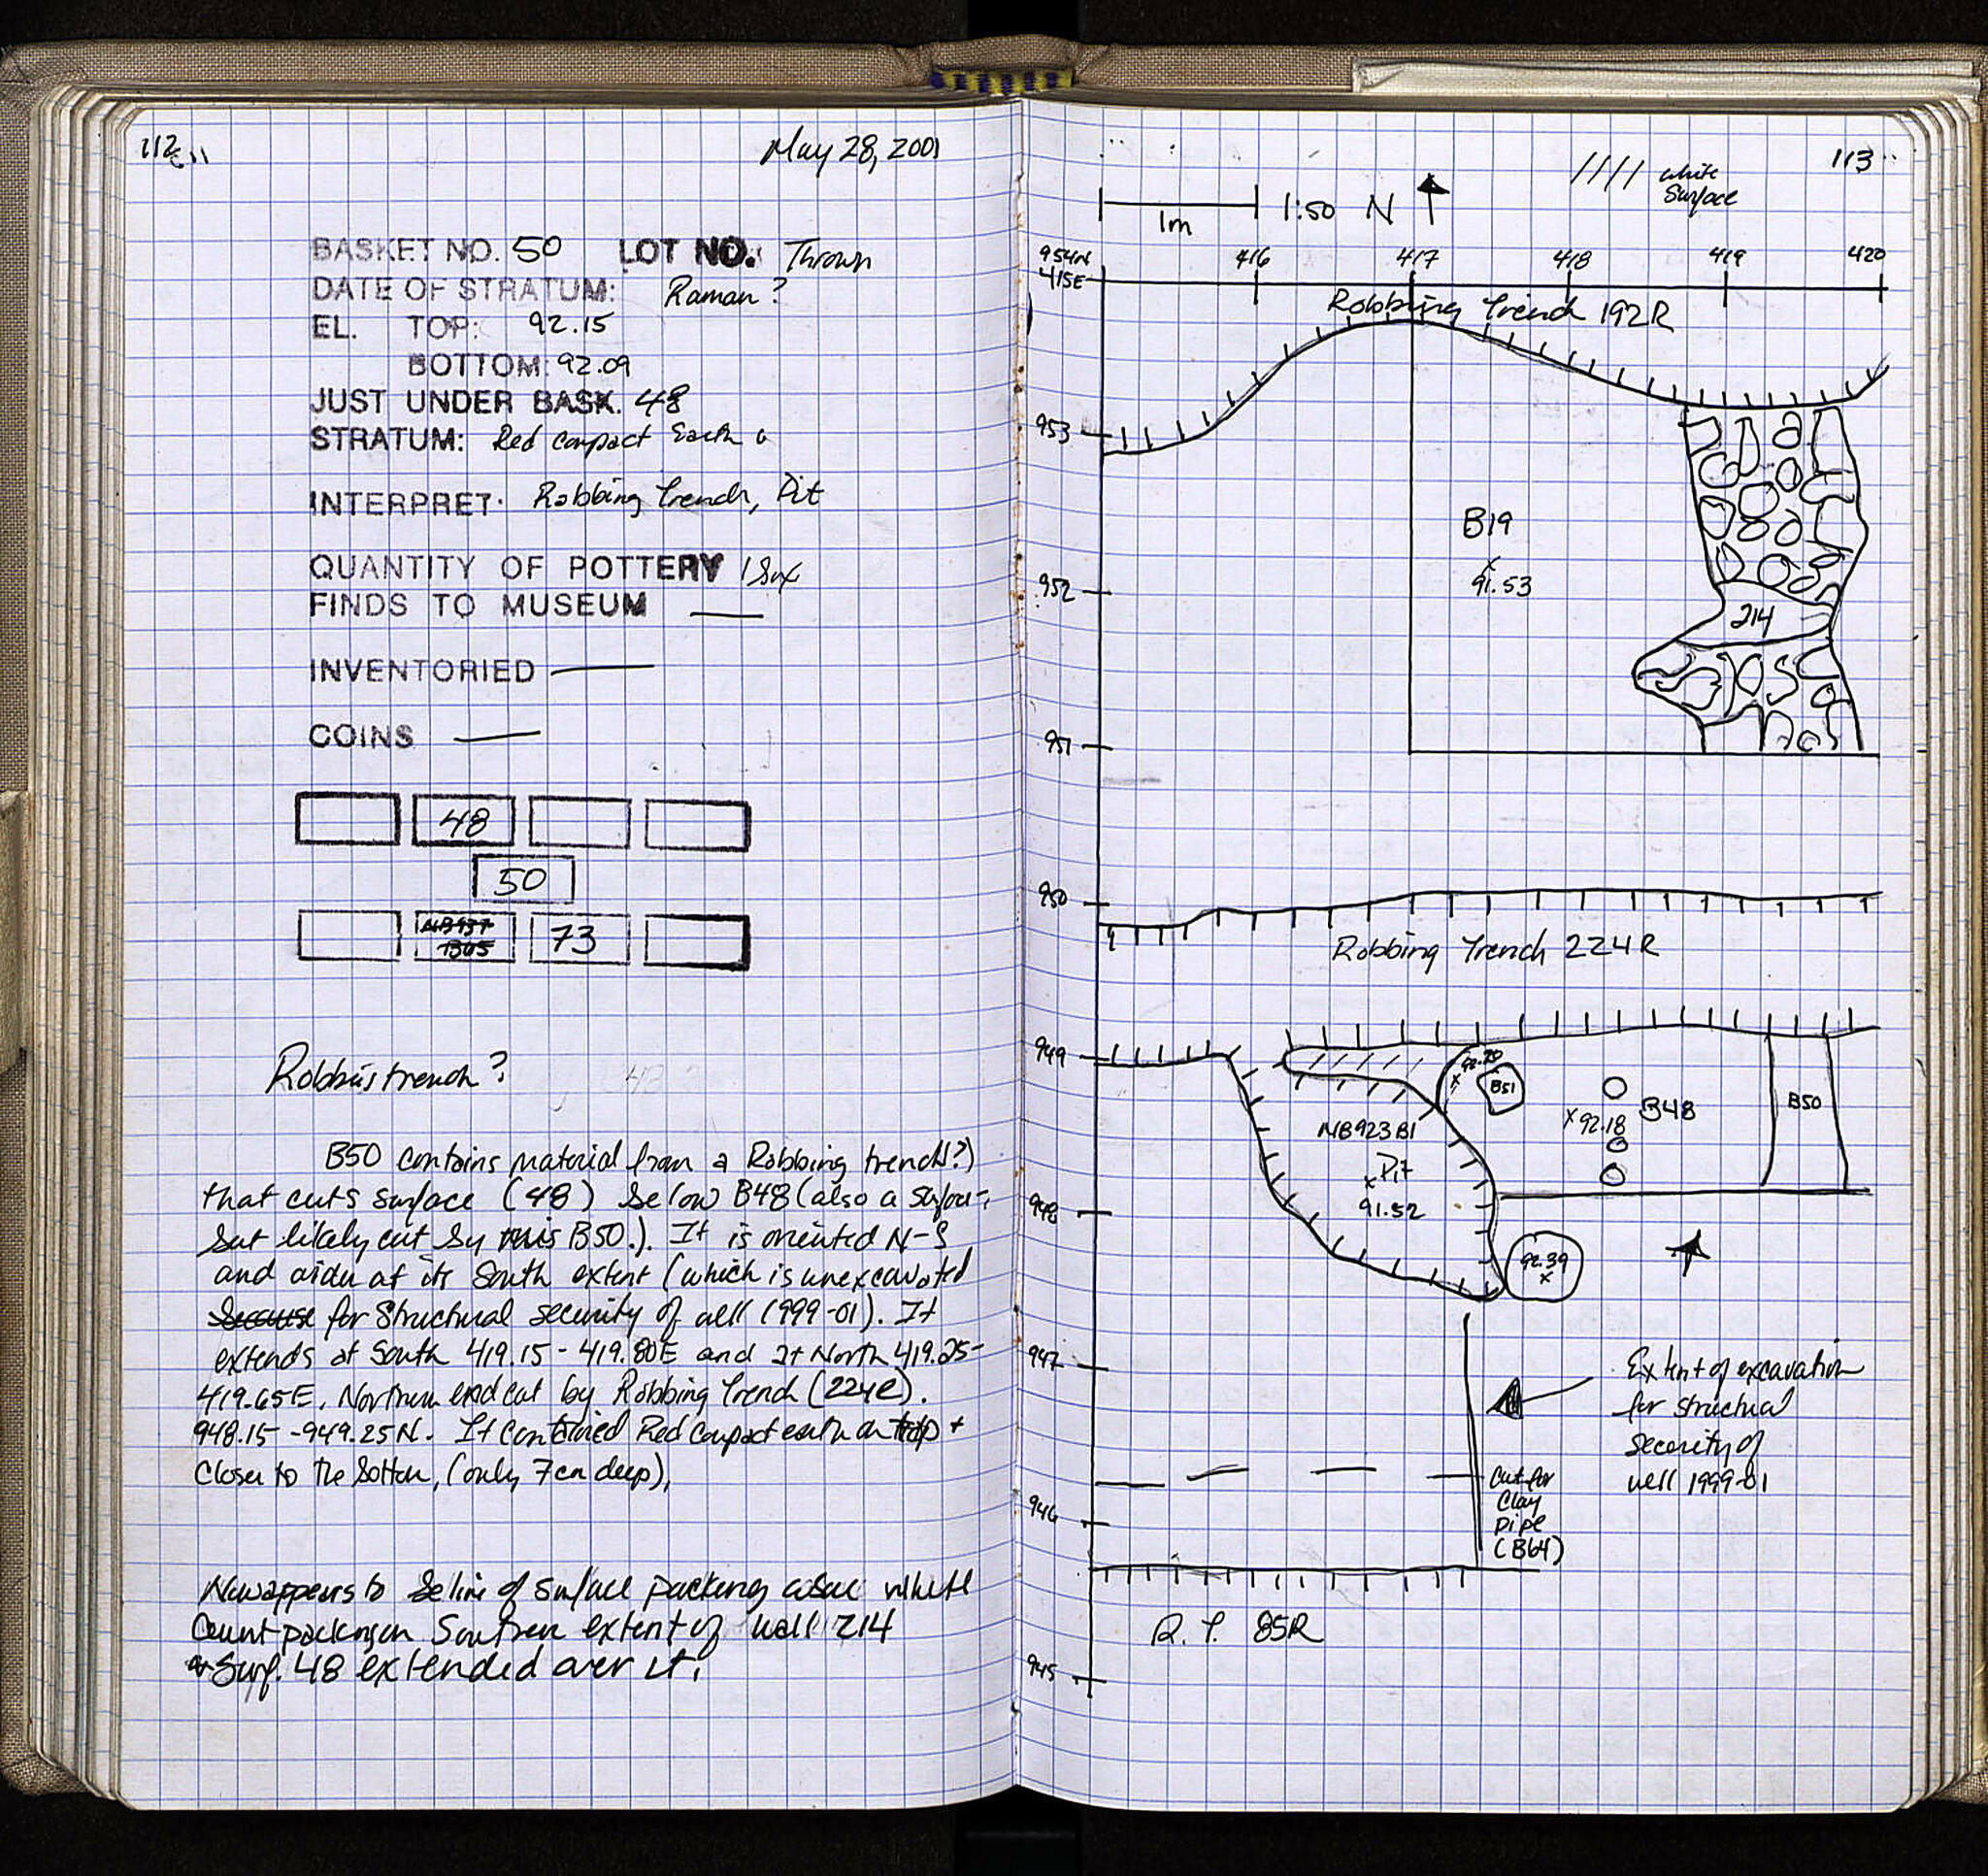 112
May 28, 2001
BASKET NO. 50 LOT NO. Thrown
DATE OF STRATUM: Roman?
EL. TOP: 92.15
BOTTOM: 92.09
JUST UNDER BASK. 48
STRATUM: Red compact Earth
INTERPRET. Robbing Trench, Pit
QUANTITY OF POTTERY 1 Box
FINDS TO MUSEUM —
INVENTORIED —
COINS —
48
50
NB937 B05 73
Robbing trench?
B50 contains material from a Robbing trench(?)
that cuts surface (48) below B48 (also a surface
but likely cut by this B50.). It is oriented N-S
and wider at its South extent (which is unexcavated
because for structural security of well 1999-01). It
extends at South 419.15 - 419.80E and at North 419.25-
419.65E. Northern end cut by Robbing Trench (224R).
948.15 - 949.25N. It contained Red compact earth on top +
closer to the bottom, (only 7cm deep).
Now appears to be line of surface packing white
packing on Southern extent of wall 214
Surf. 48 extended over it.
113
//// white
Surface
1m 1:50 N
954N 416 417 418 419 420
415E
Robbing Trench 192R
953
B19
x
91.53
952
214
951
950
Robbing Trench 224R
949
92.20
x B51
B48 B50
x92.18
NB923 B1
Pit
x
91.52
948
92.39
x
947
Extent of excavation
for structural
security of
well 1999-01
Cut for
Clay
Pipe
(B64)
946
R.T. 85R
945